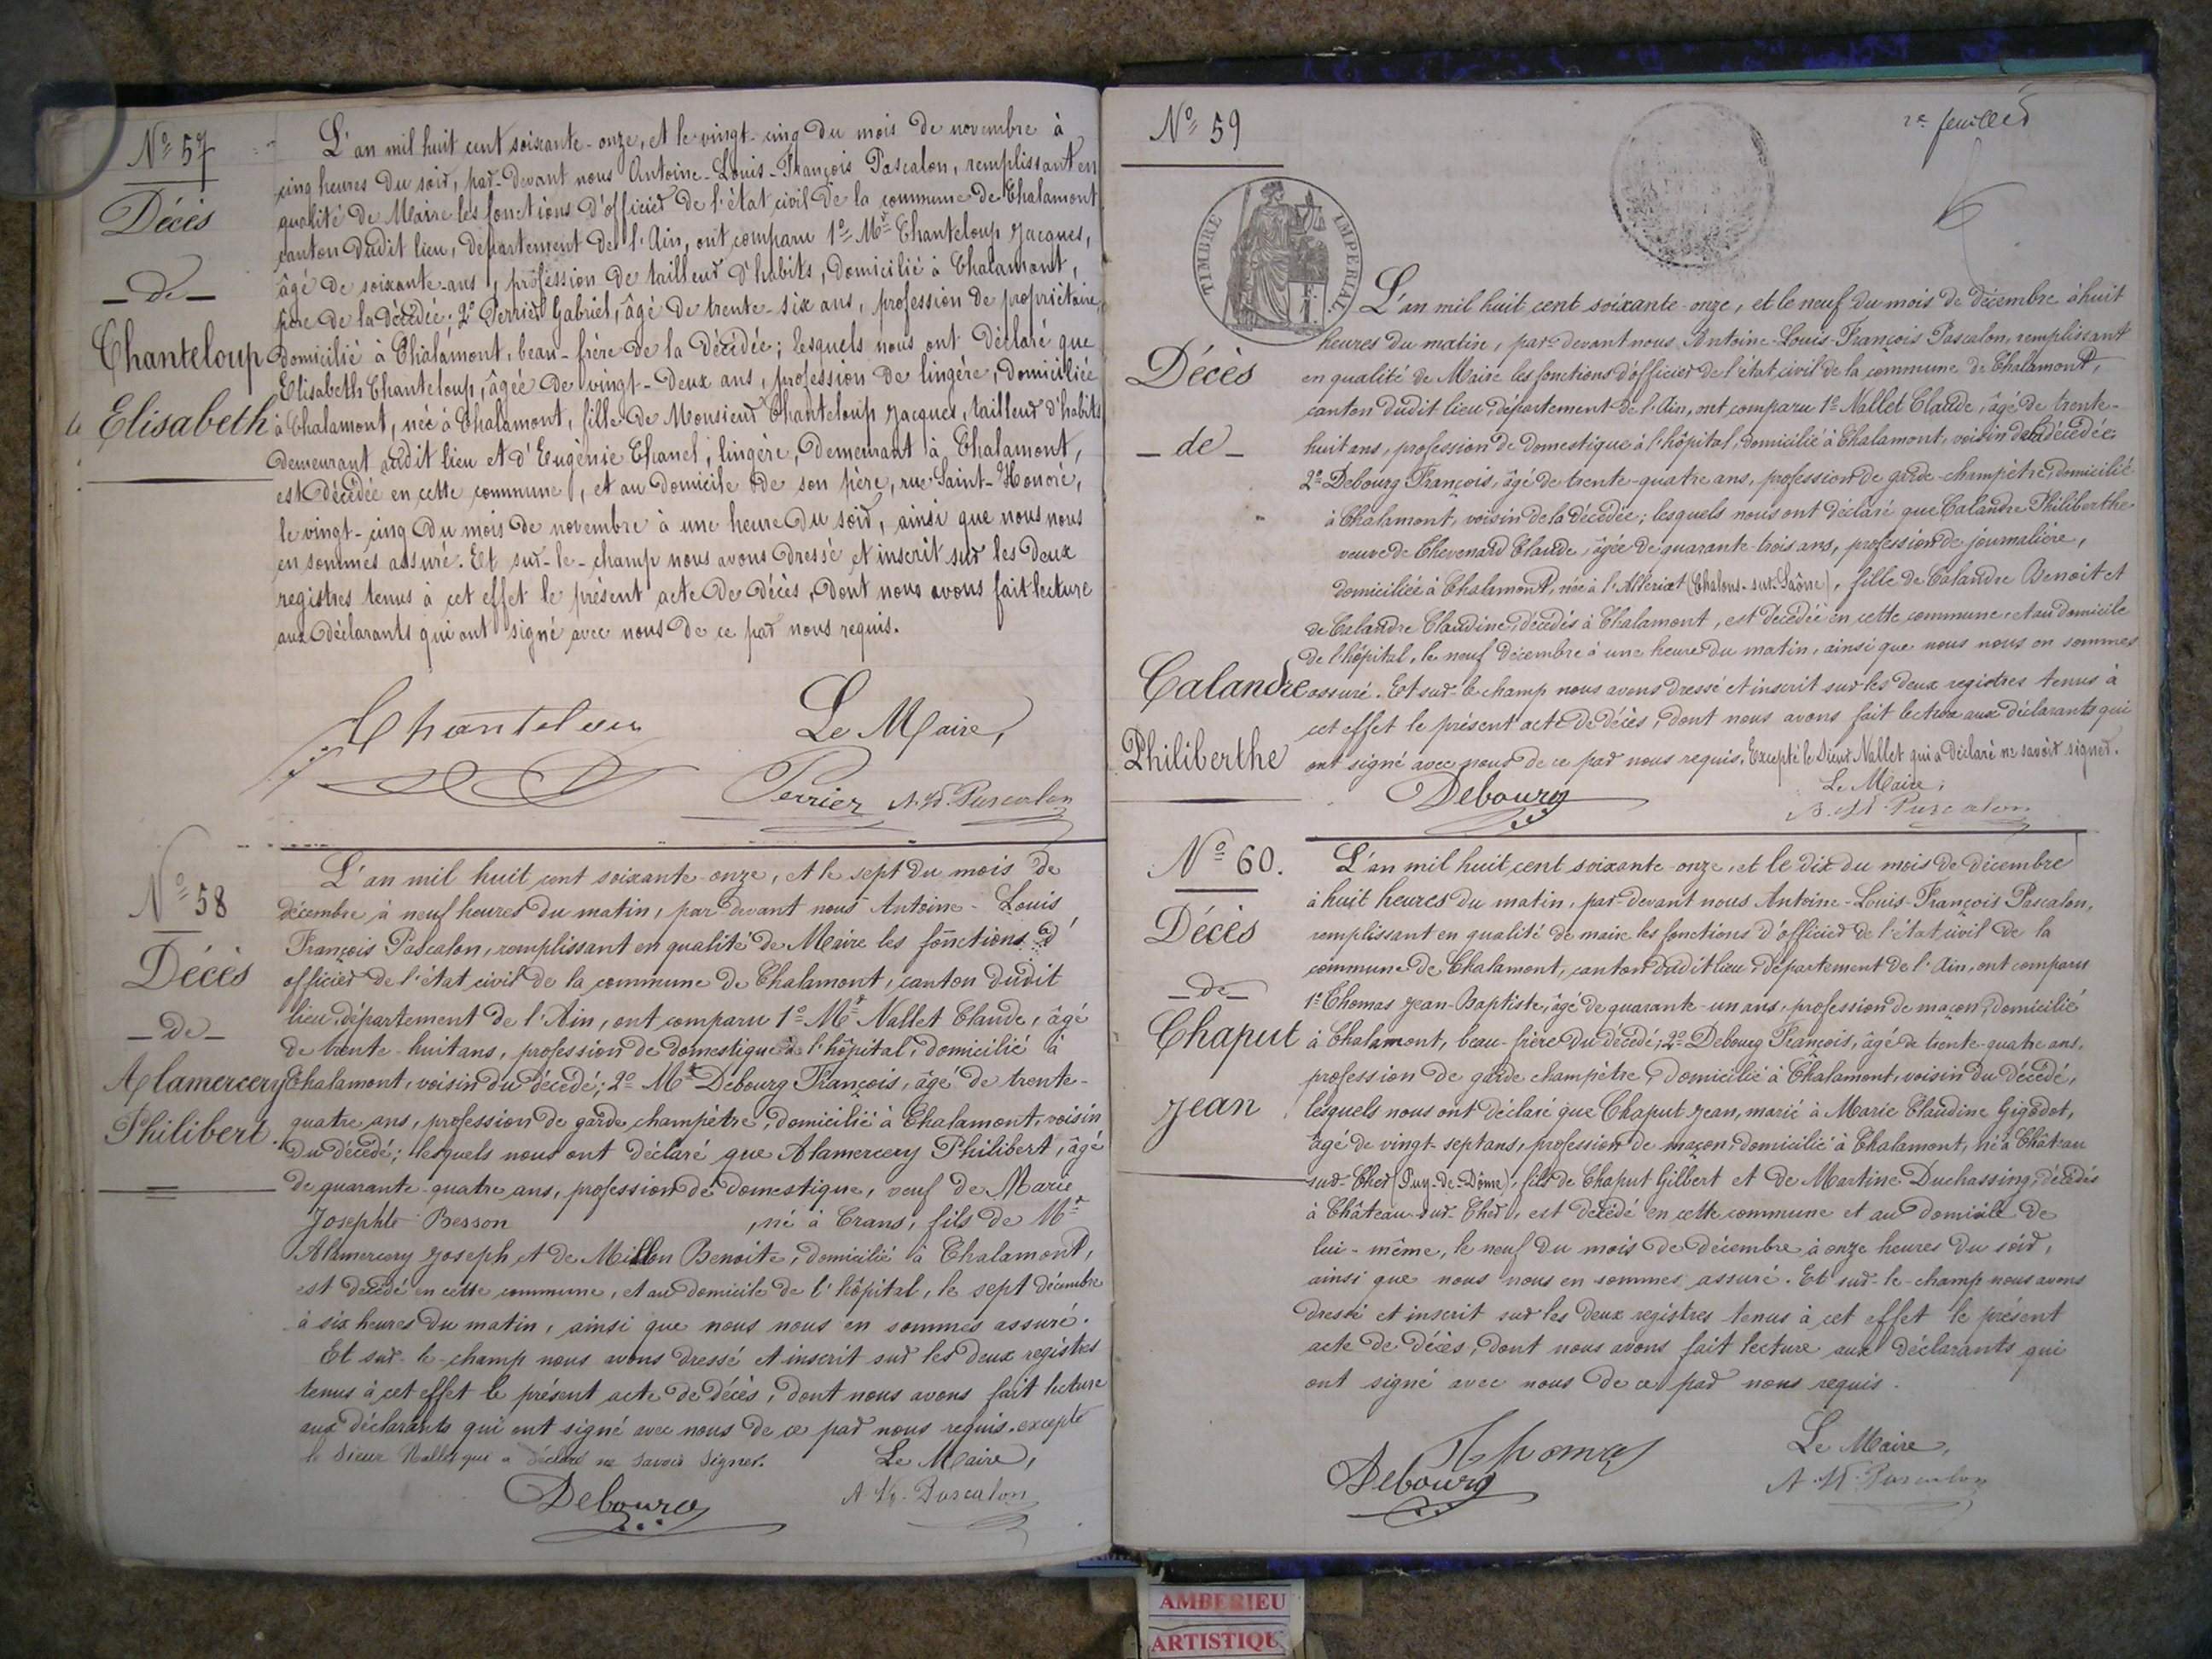 Nº 57
Décès
_ de _
Chanteloup
Elisabeth
L'an mil huit cent soixante-onze, et le vingt-cinq du mois de novembre à
cinq heures du soir, par-devant nous Antoine-Louis-François Pascalon, remplissant en
qualité de Maire les fonctions d'officier de l'état civil de la commune de Chalamont
canton dudit lieu, département de l'Ain, ont comparu 1º Mr Chanteloup Jacques,
âgé de soixante-ans, profession de tailleur d'habits, domicilié à Chalamont,
père de la décédée; 2º Perrier Gabriel, âgé de trente-six ans, profession de propriétaire,
domicilié à Chalamont, beau-frère de la décédée; lesquels nous ont déclaré que
Elisabeth Chanteloup, âgée de vingt-deux ans, profession de lingère, domiciliée
à Chalamont, née à Chalamont, fille de Monsieur Chanteloup Jacques, tailleur d'habits
demeurant audit lieu et d'Eugénie Chanel, lingère, demeurant à Chalamont,
est décédée en cette commune, et au domicile de son père, rue Saint-Honoré,
le vingt-cinq du mois de novembre à une heure du soir, ainsi que nous nous
en sommes assuré. Et sur-le-champ nous avons dressé et inscrit sur les deux
registres tenus à cet effet le présent acte de décès, dont nous avons fait lecture
aux déclarants qui ont signé avec nous de ce par nous requis.
Chanteloup
Le Maire,
Perrier A. L. Pascalon
Nº 58
Décès
_ de _
Alamercery
Philibert.
L'an mil huit cent soixante-onze, et le sept du mois de
décembre à neuf heures du matin, par-devant nous Antoine-Louis
François Pascalon, remplissant en qualité de Maire les fonctions d'
officier de l'état civil de la commune de Chalamont, canton dudit
lieu, département de l'Ain, ont comparu 1º Mr Nallet Claude, âgé
de trente-huit ans, profession de domestique à l'hôpital, domicilié à
Chalamont, voisin du décédé; 2º Mr Debourg François, âgé de trente-
quatre ans, profession de garde champêtre, domicilié à Chalamont, voisin
du décédé; lesquels nous ont déclaré que Alamercery Philibert, âgé
de quarante-quatre ans, profession de domestique, veuf de Marie
Josephte Besson , né à Crans, fils de Mr
Alamercery Joseph et de Millon Benoite, domicilié à Chalamont,
est décédé en cette commune, et au domicile de l'hôpital, le sept décembre
à six heures du matin, ainsi que nous nous en sommes assuré.
Et sur-le-champ nous avons dressé et inscrit sur les deux registres
tenus à cet effet le présent acte de décès, dont nous avons fait lecture
aux déclarants qui ont signé avec nous de ce par nous requis. excepté
le sieur Nallet qui a déclaré ne savoir signer.
Le Maire,
Debourg
A. L. Pascalon
Nº 59
2e feuille
TIMBRE IMPERIAL
Décès
_ de _
Calandre
Philiberthe
L'an mil huit cent soixante-onze, et le neuf du mois de décembre à huit
heures du matin, par-devant nous Antoine-Louis-François Pascalon, remplissant
en qualité de Maire les fonctions d'officier de l'état civil de la commune de Chalamont,
canton dudit lieu, département de l'Ain, ont comparu 1º Nallet Claude, âgé de trente-
huit ans, profession de domestique à l'hôpital, domicilié à Chalamont, voisin de la décédée
2º Debourg François, âgé de trente-quatre ans, profession de garde-champêtre, domicilié
à Chalamont, voisin de la décédée; lesquels nous ont déclaré que Calandre Philiberthe
veuve de Chevenard Claude, âgée de quarante-trois ans, profession de journalière,
domiciliée à Chalamont, née à l'Alleriot (Chalons-sur-Saône), fille de Calandre Benoit et
de Calandre Claudine, décédés à Chalamont, est décédée en cette commune et au domicile
de l'hôpital, le neuf décembre à une heure du matin, ainsi que nous nous en sommes
assuré. Et sur-le-champ nous avons dressé et inscrit sur les deux registres tenus à
cet effet le présent acte de décès, dont nous avons fait lecture aux déclarants qui
ont signé avec nous de ce par nous requis. Excepté le Sieur Nallet qui a déclaré ne savoir signer.
Le Maire,
Debourg
A. L. Pascalon
Nº 60.
Décès
_ de _
Chaput
Jean
L'an mil huit cent soixante-onze, et le dix du mois de décembre
à huit heures du matin, par-devant nous Antoine-Louis-François Pascalon,
remplissant en qualité de maire les fonctions d'officier de l'état civil de la
commune de Chalamont, canton dudit lieu, département de l'Ain, ont comparu
1º Thomas Jean-Baptiste, âgé de quarante-un ans, profession de maçon, domicilié
à Chalamont, beau-frère du décédé; 2º Debourg François, âgé de trente-quatre ans,
profession de garde champêtre, domicilié à Chalamont, voisin du décédé,
lesquels nous ont déclaré que Chaput Jean, marié à Marie Claudine Gigodot,
âgé de vingt-sept ans, profession de maçon, domicilié à Chalamont, né à Château
sur-Cher (Puy-de-Dôme), fils de Chaput Gilbert et de Martine Duchassing, décédés
à Château-sur-Cher, est décédé en cette commune et au domicile de
lui-même, le neuf du mois de décembre à onze heures du soir,
ainsi que nous nous en sommes assuré. Et sur-le-champ nous avons
dressé et inscrit sur les deux registres tenus à cet effet le présent
acte de décès, dont nous avons fait lecture aux déclarants qui
ont signé avec nous de ce par nous requis.
Thomas
Le Maire,
Debourg
A. L. Pascalon
AMBERIEU
ARTISTIQU